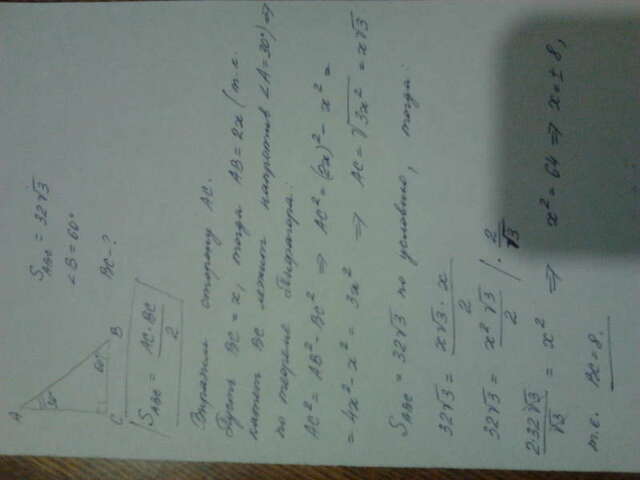 A
30°
60°
C
B
S_ABC = 32√3
∠B = 60°
BC - ?
S_ABC = AC·BC / 2
Выразим сторону AC.
Пусть BC = x, тогда AB = 2x (т.к.
катет BC лежит напротив ∠A = 30°) ⇒
по теореме Пифагора:
AC² = AB² - BC² ⇒ AC² = (2x)² - x² =
= 4x² - x² = 3x² ⇒ AC = √3x² = x√3
S_ABC = 32√3 по условию, тогда:
32√3 = x√3 · x / 2
32√3 = x²√3 / 2 | · 2/√3
2·32√3 / √3 = x² ⇒ x² = 64 ⇒ x = ± 8,
т.е. BC = 8.